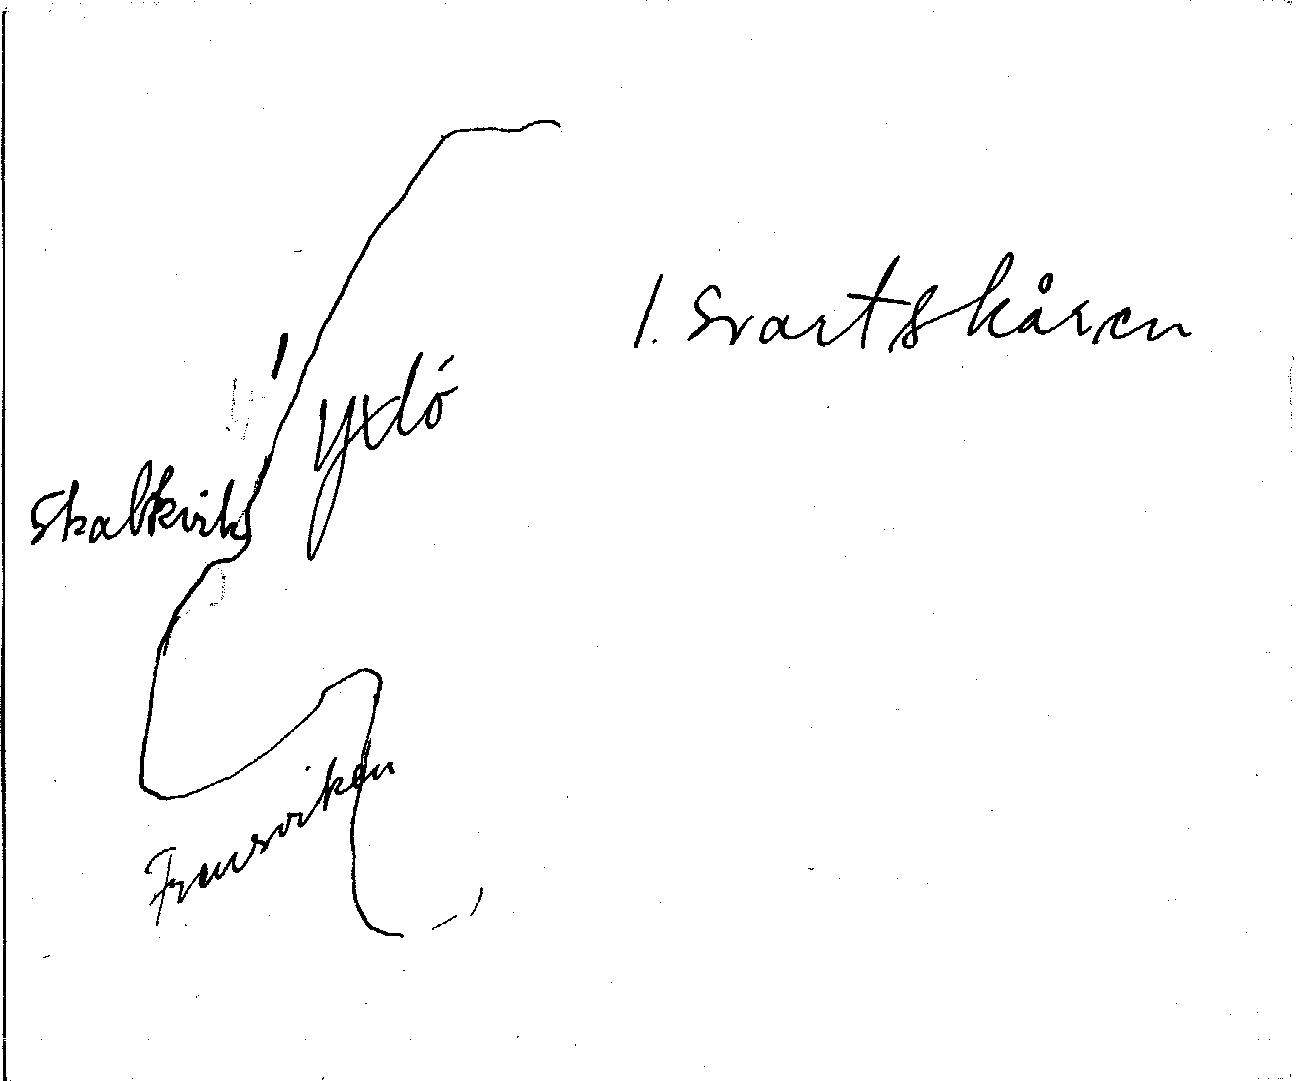 1. Svartskåren
1
Yxlö
Skalkvik
Fransviken